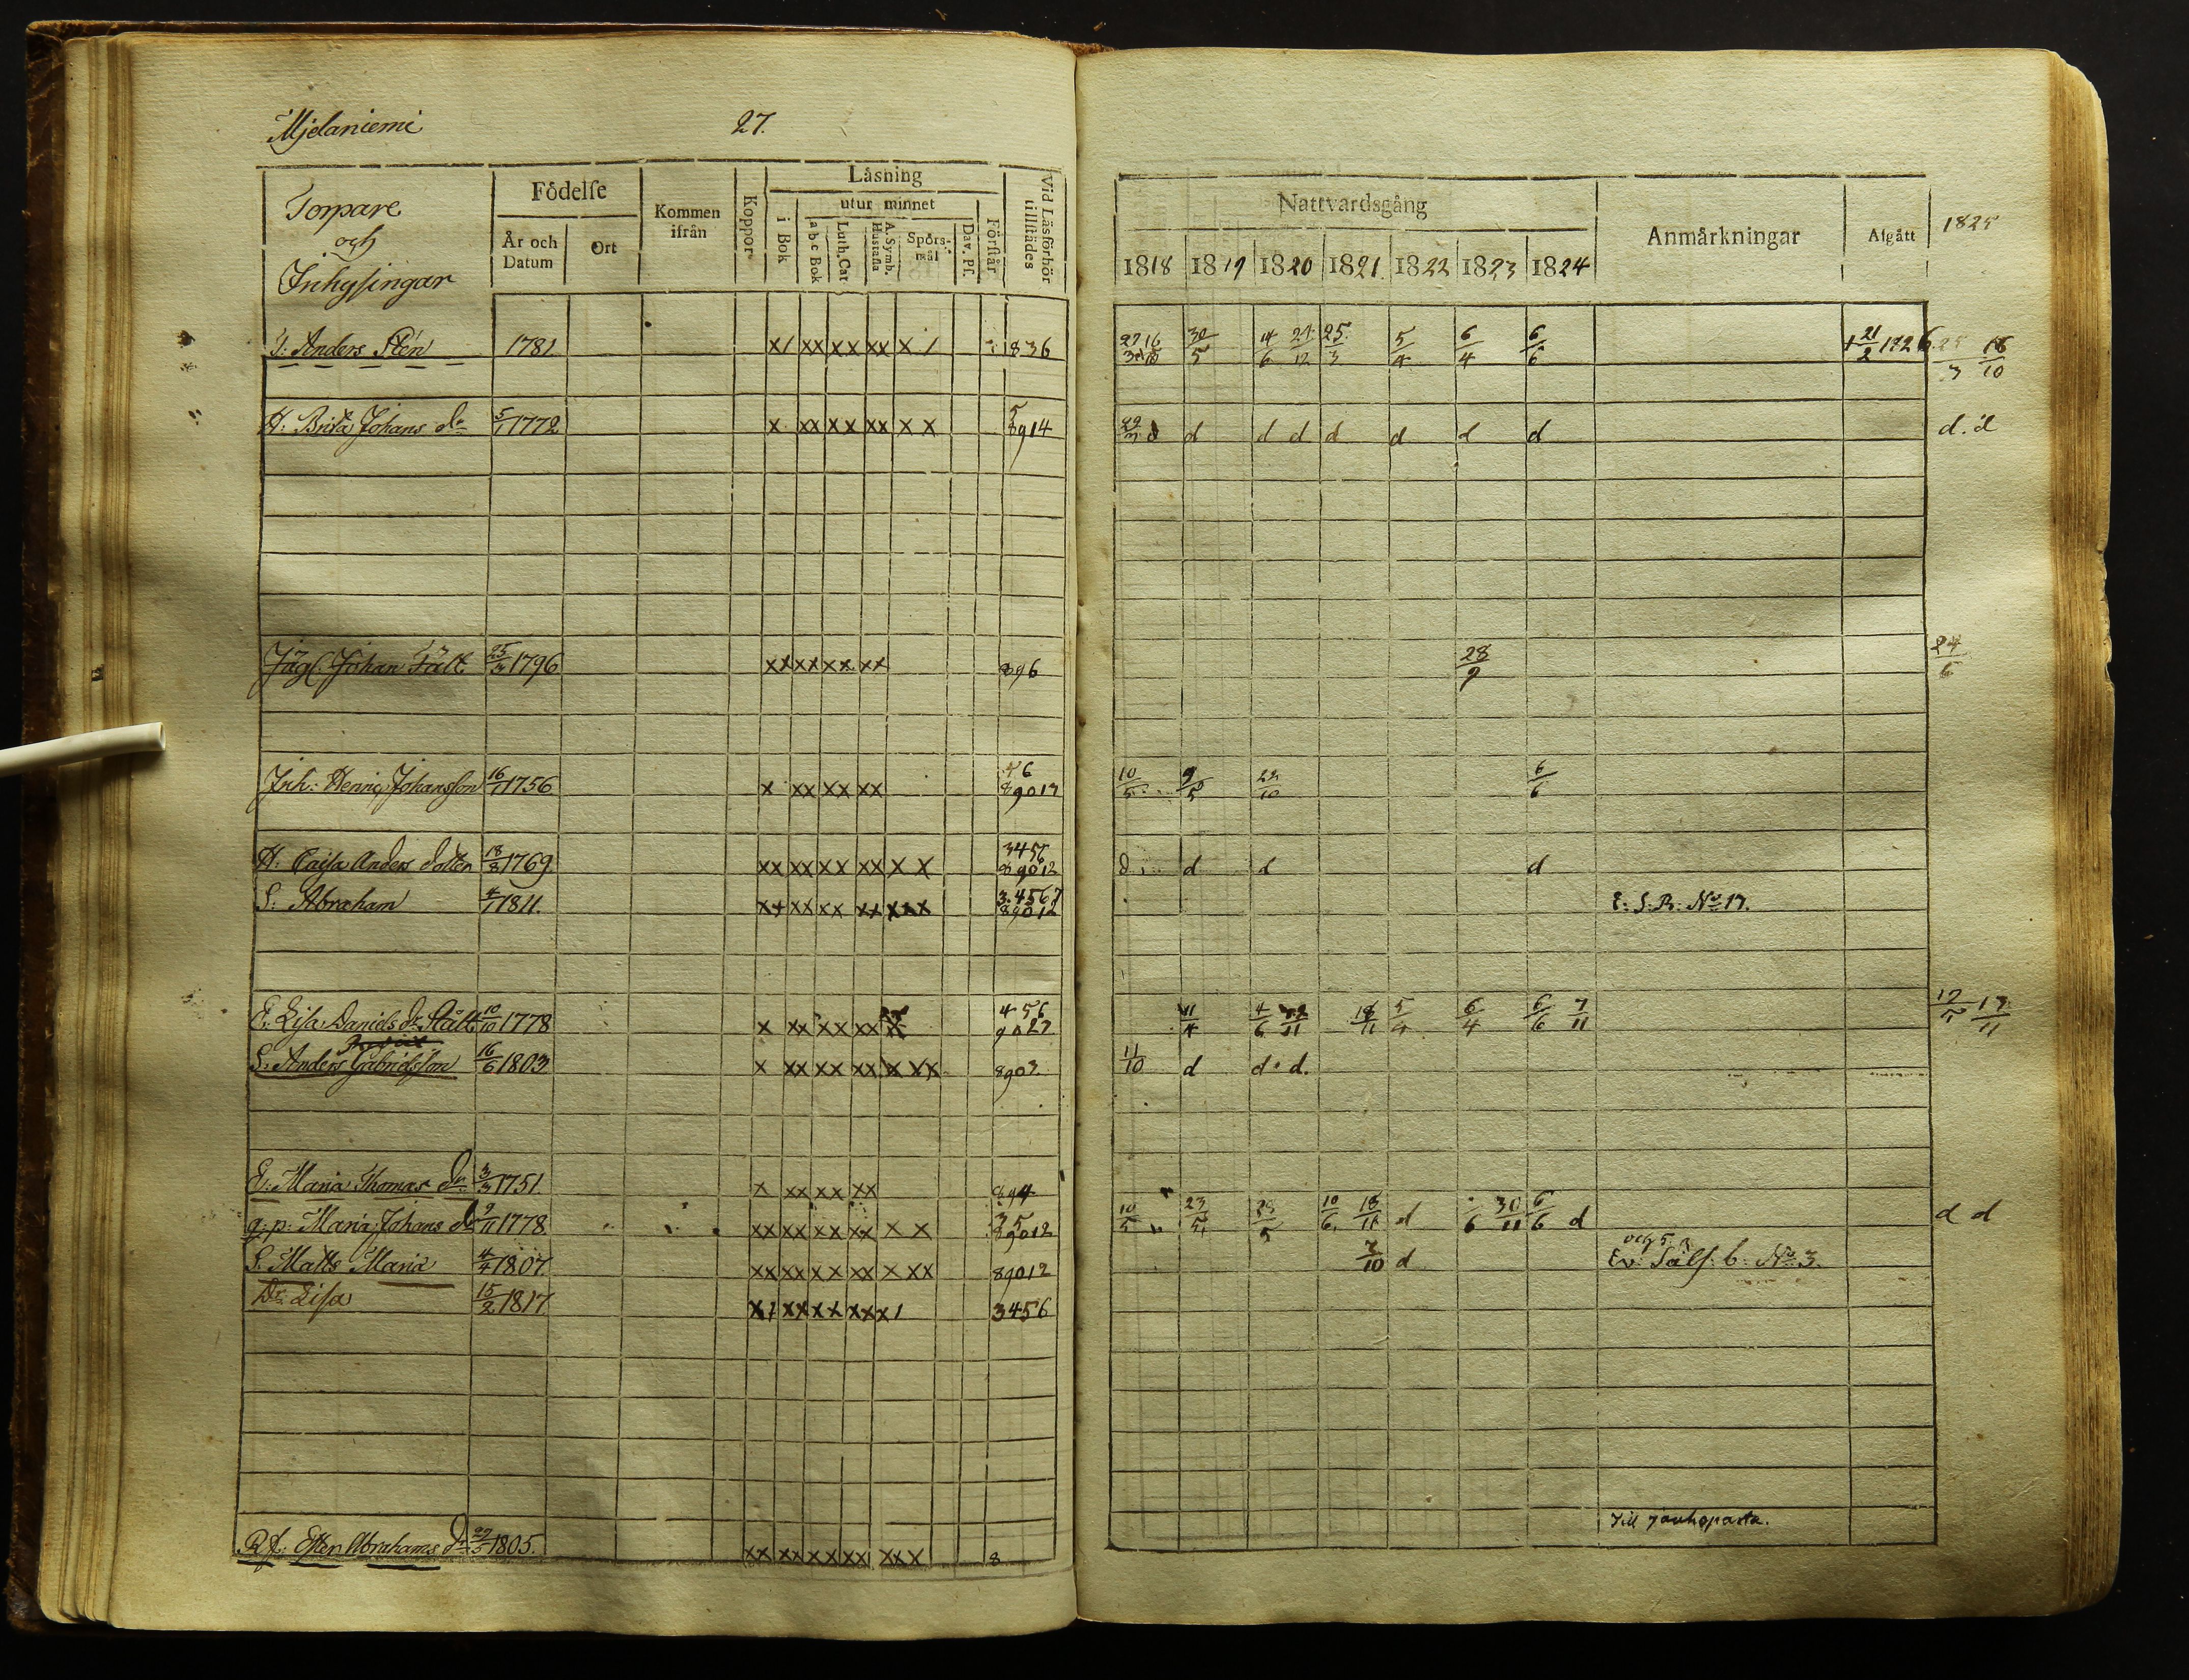 Mjelaniemi 27.
Torpare
och
Inhysingar
Födelse
År och Datum
Ort
Kommen ifrån
Koppor
Läsning
i Bok
utur minnet
a b c Bok
Luth. Cat
A. Symb. Hustafla
Spörsmål
Dav. Ps.
Förstår
Vid Läsförhör tillstädes
Nattvardsgång
1818 1819 1820 1821 1822 1823 1824
Anmärkningar
Afgått
1825
T: Anders Sten 1781 x/ xx xx xx x / 836 30/5 14/6 24/12 25/3 5/4 6/4 6/6 + 21/2 1826 18/10
H: Brita Johans dr 5/1 1772 x xx xx xx x x 5 8914 d d d d d d d d d. d
Jäg. Johan Fält 25/3 1796 xx xx xx xx 896 28/9 24/6
Inh: Henric Johansson 16/1 1756 x xx xx xx 46 89012 10/5 9/5 22/10 6/6
H: Caisa Anders dotter 18/8 1769 xx xx xx xx x x 3456 89012 d d d d
S: Abraham 4/1 1811. xx xx xx xx xxx 34567 89012 E: S: R: No 17.
E: Lisa Daniels dr Stålt 10/10 1778 x xx xx xx x 456 9027 11/4 4/6 18/11 5/4 6/4 6/6 7/11 17/11
S: Anders Gabrielsson 16/6 1803 x xx xx xx x xx 8902 11/10 d d. d.
E: Maria Thomas dr 3/3 1751. x xx xx xx 894
q: p: Maria Johans dr 9/11 1778 xx xx xx xx x x 35 89012 10/5 23/5 28/5 10/6 18/11 d 30/11 6/6 d d d
S. Matts Maria 4/4 1807 xx xx xx xx x xx 89012 7/10 d Ev: Sälf. b: No 3.
Dr Lisa 15/2 1817 x1 xx xx xx x1 3456
Till Jauhoparta.
Pf: Ester Abrahams dr 27/5 1805. xx xx xx xx xxx 8